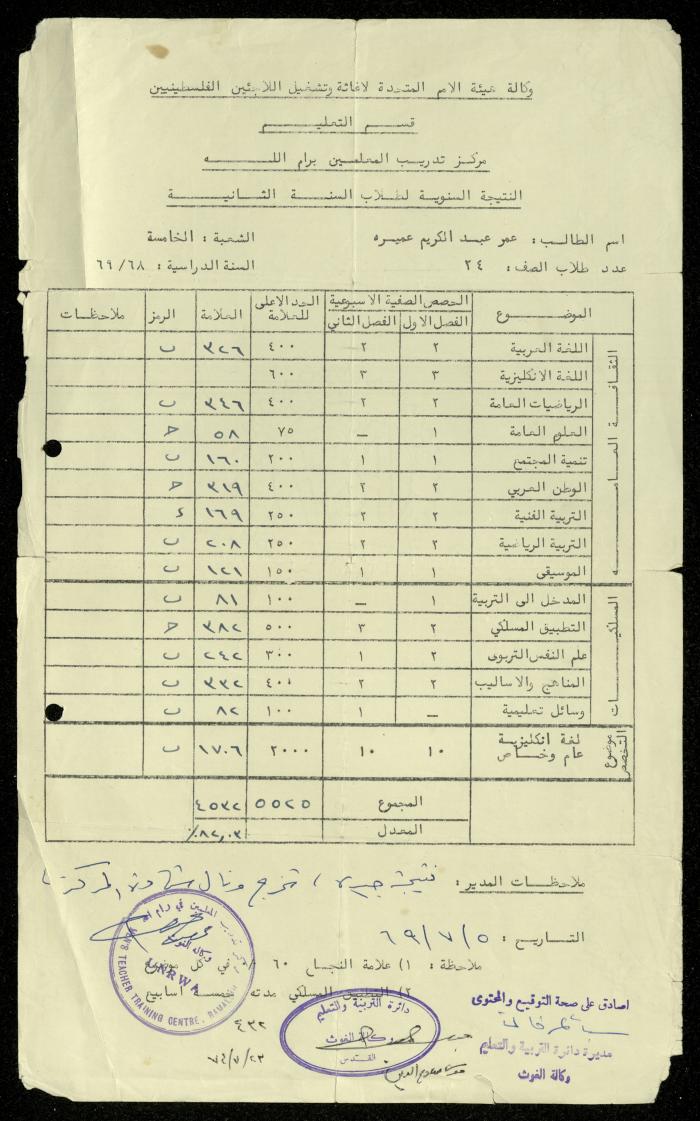 وكالة هيئة الامم المتحدة لاغاثة وتشغيل اللاجئين الفلسطينيين
قسم التعليم
مركز تدريب المعلمين برام الله
النتيجة السنوية لطلاب السنة الثانية
اسم الطالب : عمر عبد الكريم عميره الشعبة : الخامسة
عدد طلاب الصف : ٢٤ السنة الدراسية : ٦٩/٦٨
الموضوع الحصص الصفية الاسبوعية الحد الاعلى للعلامة العلامة الرمز ملاحظات
الفصل الاول الفصل الثاني
الثقافة العامة
اللغة العربية ٢ ٢ ٤٠٠ ٣٢٦ ب
اللغة الانكليزية ٣ ٣ ٦٠٠
الرياضيات العامة ٢ ٢ ٤٠٠ ٣٤٦ ب
العلوم العامة ١ — ٧٥ ٥٨ ح
تنمية المجتمع ١ ١ ٢٠٠ ١٦٠ ب
الوطن العربي ٢ ٢ ٤٠٠ ٣١٩ ح
التربية الفنية ٢ ٢ ٢٥٠ ١٦٩ د
التربية الرياضية ٢ ٢ ٢٥٠ ٢٠٨ ب
الموسيقى ١ ١ ١٥٠ ١٢١ ب
المسلكيات
المدخل الى التربية ١ — ١٠٠ ٨١ ب
التطبيق المسلكي ٢ ٣ ٥٠٠ ٣٨٢ ح
علم النفس التربوى ٢ ١ ٣٠٠ ٢٤٢ ب
المناهج والاساليب ٢ ٢ ٤٠٠ ٣٣٢ ب
وسائل تعليمية — ١ ١٠٠ ٨٢ ب
موضوع التخصص
لغة انكليزية عام وخاص ١٠ ١٠ ٢٠٠٠ ١٧٠٦ ب
المجموع ٥٥٢٥ ٤٥٣٢
المعدل ٨٢,٠٣٪
ملاحظات المدير : نتيجة جيدة ، تخرج ونال شهادة المركز
التاريخ : ٦٩/٧/٥
ملاحظة : ١) علامة النجاح ٦٠ ٪ في كل موضوع
٢) التطبيق المسلكي مدته خمسة اسابيع
٤٣٢
٧٤/٧/٢٣
UNRWA
TEACHER TRAINING CENTRE, RAMALLAH
وكالة الغوث
دائرة التربية والتعليم
وكالة الغوث
القدس
اصادق على صحة التوقيع والمحتوى
مديرة دائرة التربية والتعليم
وكالة الغوث